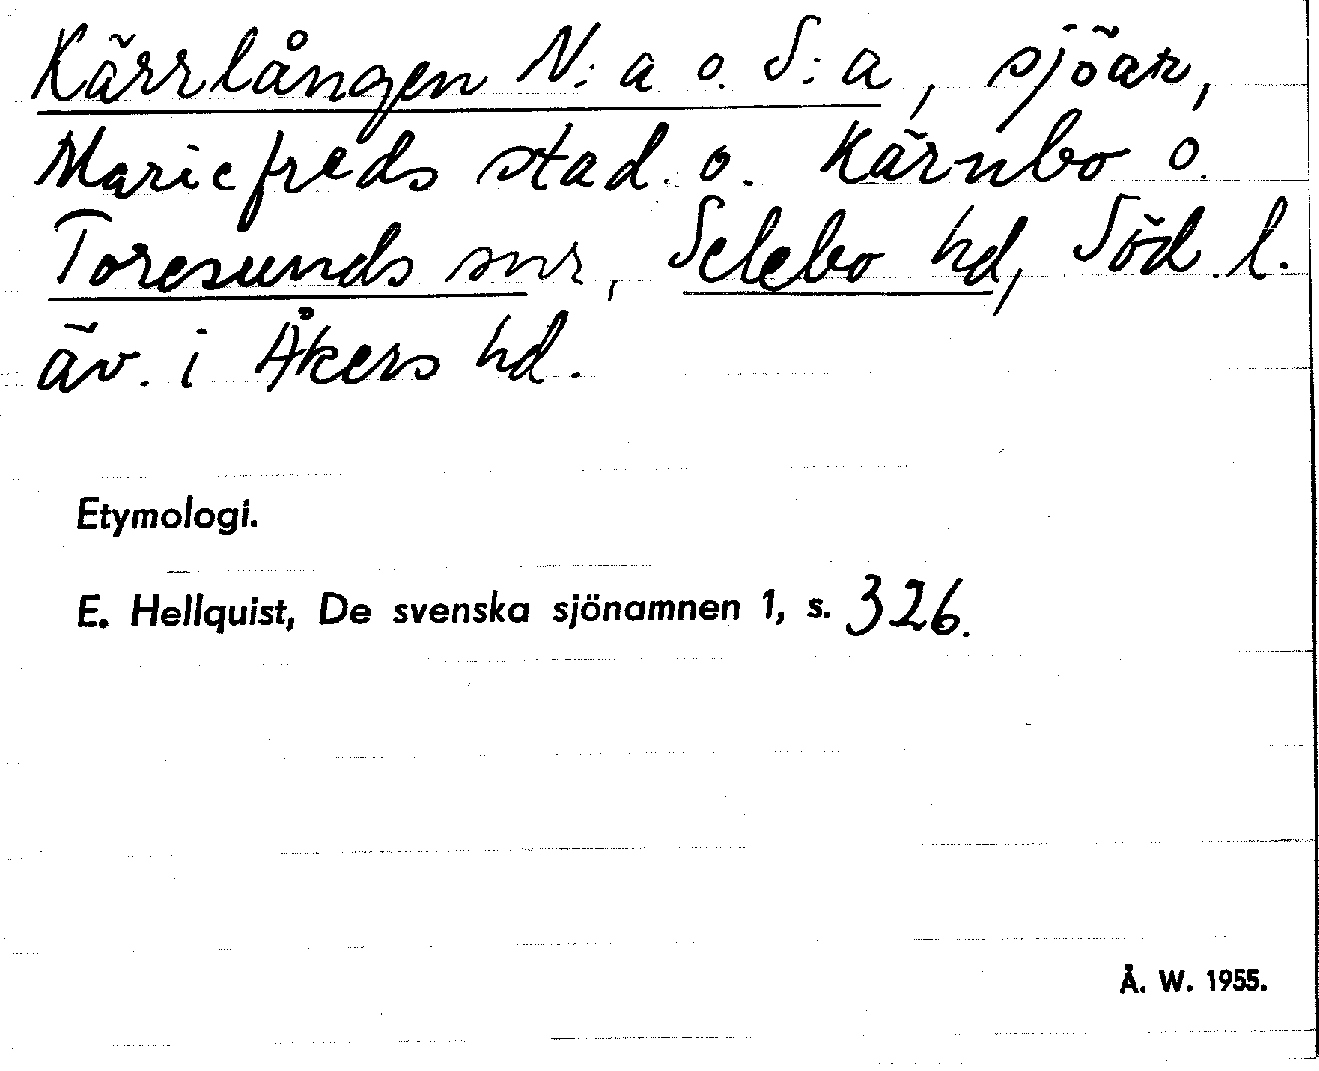 Kärrlången N:a o. S:a, sjöar,
Mariefreds stad. o. Kärnbo o.
Toresunds snr, Selebo hd, Söd. l.
äv. i Åkers hd.
Etymologi.
E. Hellquist, De svenska sjönamnen 1, s. 326.
Å. W. 1955.